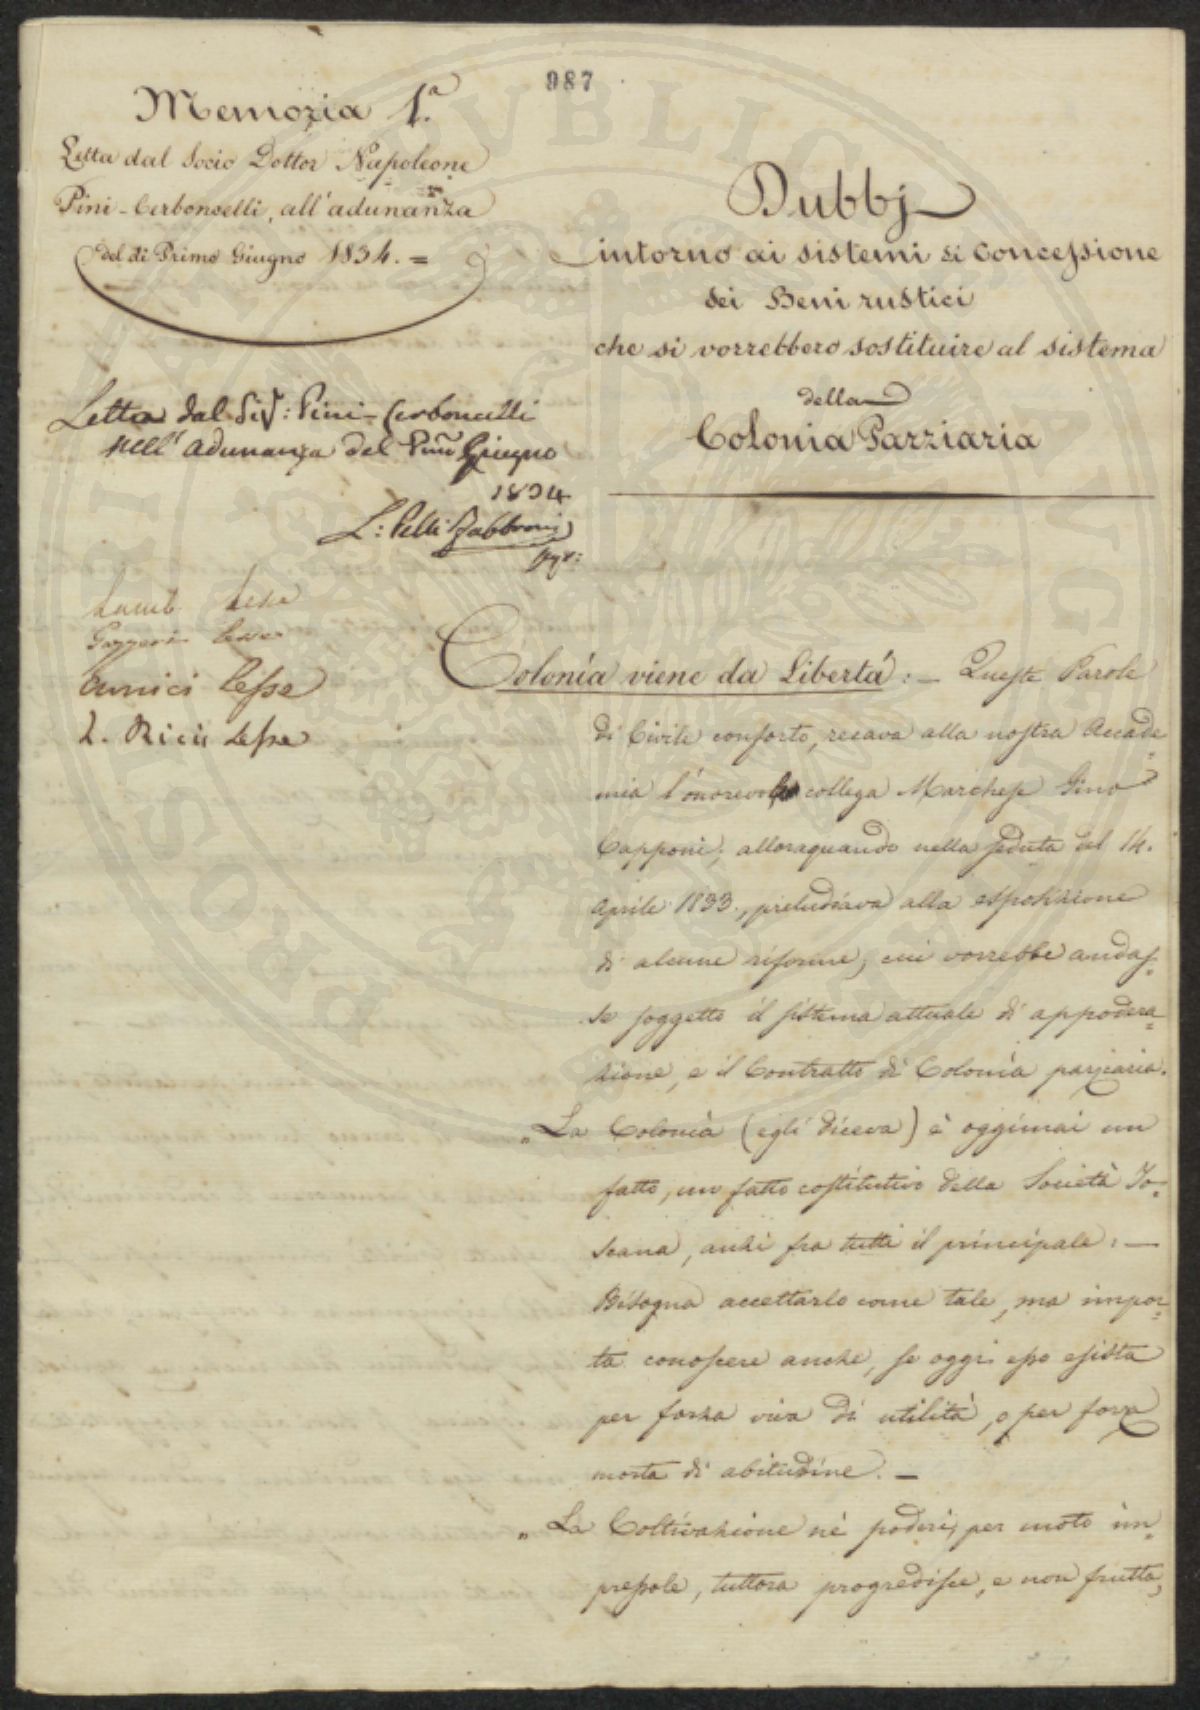 987
Memoria 1.a
Letta dal Socio Dottor Napoleone
Pini-Cerboncelli, all'adunanza
del di Primo Giugno 1834. =
Letta dal Sig.: Pini-Cerboncelli
nell'Adunanza del Pmo Giugno
1834
L: Pelli Fabbroni
Lamb. Lesse
Gazzeri lesse
lesse
L. Ricci Lesse
Dubbj
intorno ai sistemi di Concessione
dei Beni rustici
che si vorrebbero sostituire al sistema
della
Colonia Parziaria
Colonìa viene da Libertà: — Queste Parole
di Civile conforto, recava alla nostra Accade=
mia l'onorevole collega Marchese Gino
Capponi, alloraquando nella seduta del 14.
Aprile 1833., preludiava alla esposizione
di alcune riforme, cui vorrebbe andas=
se soggetto il sistema attuale di appodera=
zione, e il Contratto di Colonìa parziaria.
„La Colonìa (egli diceva) è oggimai un
fatto, un fatto costitutivo della Società To=
scana, anzi fra tutti il principale: —
Bisogna accettarlo come tale, ma impor=
ta conoscere anche, se oggi esso esista
per forza viva di utilità, o per forza
morta di abitudine. —
„La Coltivazione nè poderi, per moto im=
pressole, tuttora progredisce, e non frutta,
PVBLICAE
PROSPERITATI
AVGENDAE